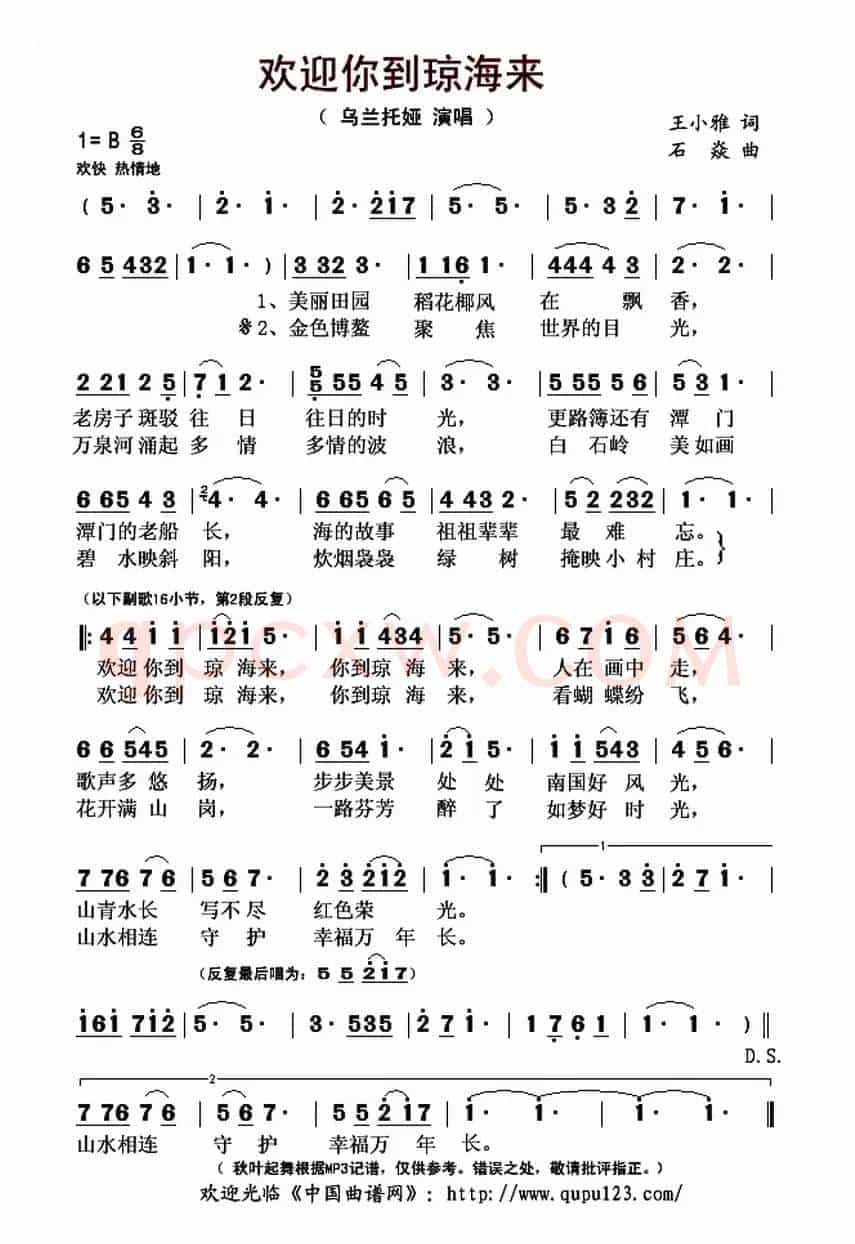 欢迎你到琼海来
( 乌兰托娅 演唱 )
王小雅 词
1= B 6/8
石 焱 曲
欢快 热情地
( 5· 3· | 2· 1· | 2· 217 | 5· 5· | 5· 3 2 | 7· 1· |
6 5 432 | 1· 1· ) | 3 32 3· | 1 16 1· | 444 4 3 | 2· 2· |
1、美丽田园 稻花椰风 在 飘 香，
※2、金色博鳌 聚 焦 世界的目 光，
2 21 2 5 | 7 1 2· | 5/5 55 4 5 | 3· 3· | 5 55 5 6 | 5 3 1· |
老房子 斑驳 往 日 往日的时 光， 更路簿还有 潭 门
万泉河 涌起 多 情 多情的波 浪， 白 石岭 美如画
6 65 4 3 | 2 4· 4· | 6 65 6 5 | 4 43 2· | 5 2 232 | 1· 1· |
潭门的老船 长， 海的故事 祖祖辈辈 最 难 忘。
碧 水映斜 阳， 炊烟袅袅 绿 树 掩映小村 庄。
(以下副歌16小节，第2段反复)
‖: 4 4 1 1 | 121 5· | 1 1 434 | 5· 5· | 6 7 1 6 | 5 6 4· |
欢迎你到 琼 海来， 你到琼 海 来， 人在 画中 走，
欢迎你到 琼 海来， 你到琼 海 来， 看蝴 蝶纷 飞，
6 6 545 | 2· 2· | 6 54 1 1 | 2 1 5· | 1 1 543 | 4 5 6· |
歌声多 悠 扬， 步步美景 处 处 南国好 风 光，
花开满 山 岗， 一路芬芳 醉 了 如梦好 时 光，
1
7 76 7 6 | 5 6 7· | 2 3 212 | 1· 1· :‖ ( 5· 3 3 | 2 7 1· |
山青水长 写不尽 红色荣 光。
山水相连 守 护 幸福万 年 长。
(反复最后唱为: 5 5 217)
161 712 | 5· 5· | 3· 535 | 2 7 1· | 1 7 6 1 | 1· 1· ) ‖
D.S.
2
7 76 7 6 | 5 6 7· | 5 5 217 | 1· 1· | 1· 1· ‖
山水相连 守 护 幸福万 年 长。
( 秋叶起舞根据MP3记谱，仅供参考。错误之处，敬请批评指正。)
欢迎光临《中国曲谱网》: http://www.qupu123.com/
qpcxw.com